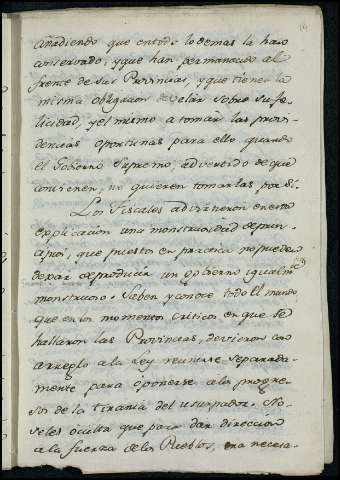 añadiendo que entodo lo demas la han
conservado, y que han permanecido al
frente de sus Provincias, y que tienen la
misma obligacion de velar sobre su fe-
licidad, y el mismo a tomar las provi-
dencias oportunas para ello quando
el Gobierno Supremo, advertido de que
convienen, no quieren tomarlas por si.
Los Fiscales advirtieron en esta
explicacion una monstruosidad de prin-
cipios, que puestos en practica no pueden
dexar de producir un gobierno igualmte
monstruoso. Saben y conoce todo el mundo
que en los momentos criticos en que se
hallaron las Provincias, devieron con
arreglo a la Ley reunirse separada-
mente para oponerse a los progre-
sos de la tirania del usurpador. No
seles oculta que para dar direccion
a la fuerza de los Pueblos, era necesa-